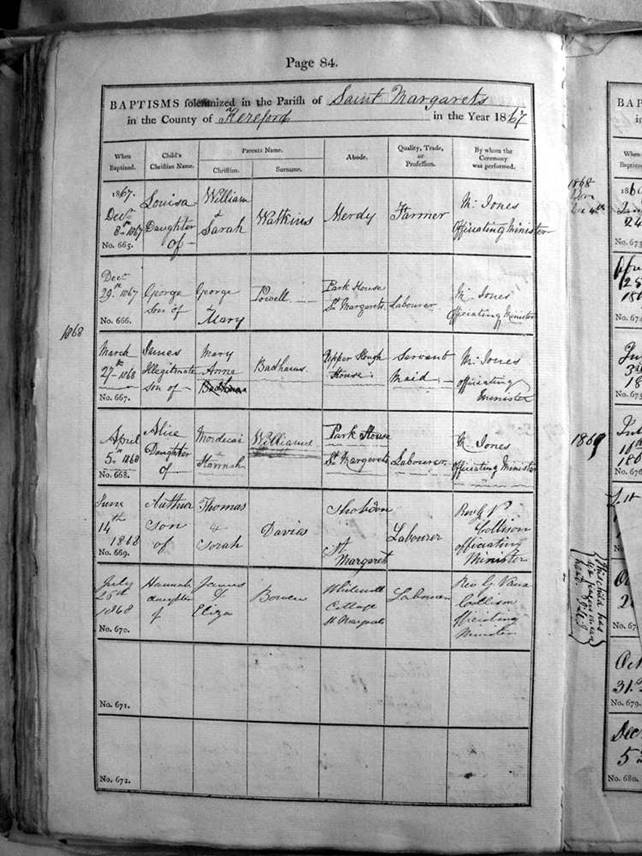 Page 84.
BAPTISMS solemnized in the Parish of Saint Margarets
in the County of Hereford in the Year 1867
When Baptized.
Child's Christian Name.
Parents Name.
Christian.
Surname.
Abode.
Quality, Trade, or Profession.
By whom the Ceremony was performed.
1867.
Decr
8th 1867
No. 665.
Louisa
Daughter
of
William
&
Sarah
Watkins
Merdy
Farmer
Mr Jones
Officiating Minister
Decr
29th 1867
No. 666.
George
Son of
George
&
Mary
Powell
Park House
St Margarets
Labourer
Mr Jones
Officiating Minister
1868
March
27th 1868
No. 667.
James
Illegitimate
Son of
Mary
Anne
Badhams
Upper Slough
House
Servant
Maid
Mr Jones
officiating
Minister
April
5th 1868
No. 668.
Alice
Daughter
of
Mordecai
&
Hannah
Williams
Park House
St Margarets
Labourer
Jones
Officiating Minister
June
14th
1868
No. 669.
Arthur
Son
of
Thomas
&
Sarah
Davies
St
Margarets
Labourer
Revd G V
Collison
officiating
Minister
July
26th
1868
No. 670.
Hannah
daughter
of
James
&
Eliza
Bowen
Whitewall
Cottage
St Margarets
Labourer
Rev G Vaux
Collison
Officiating
Minister
No. 671.
No. 672.
1868
1869